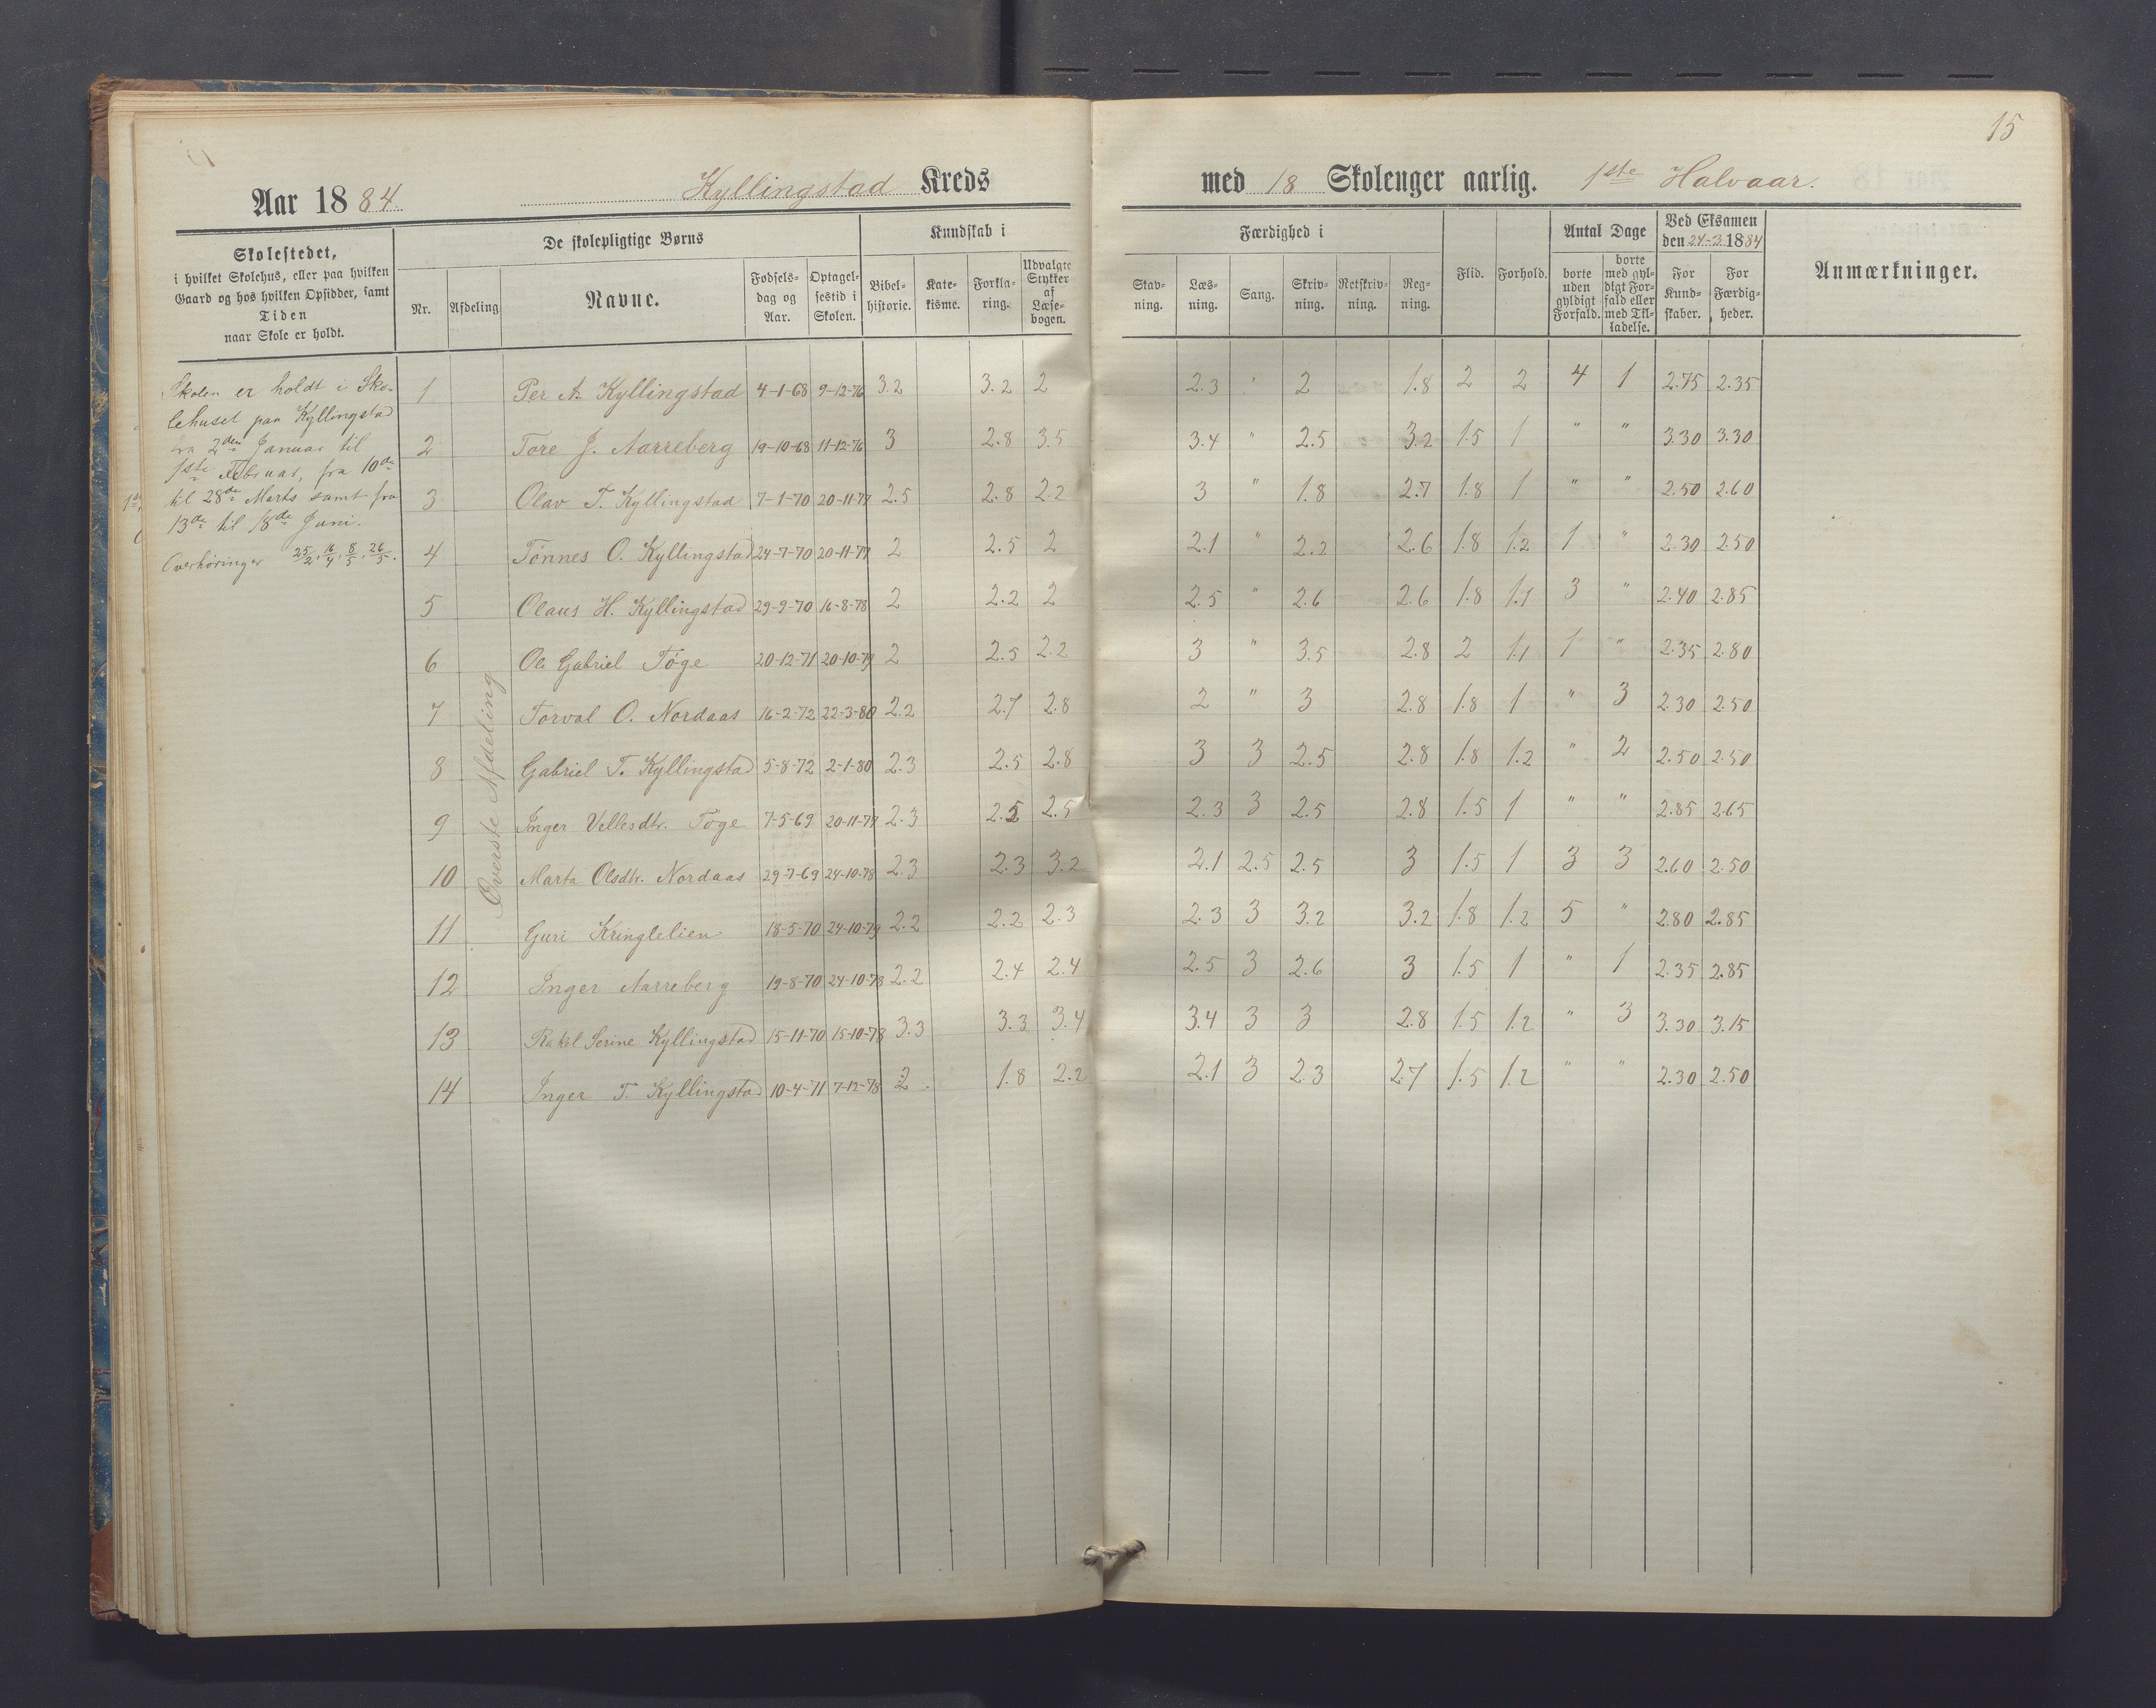 15
Aar 1884. Kyllingstad Kreds med 18 Skolenger aarlig. 1ste Halvaar.
Skolestedet,
i hvilket Skolehus, eller paa hvilken
Gaard og hos hvilken Opsidder, samt
Tiden
naar Skole er holdt.
De skolepligtige Børns
Nr. Afdeling Navne. Fødsels-dag og Aar. Optagel-sestid i Skolen.
Kundskab i
Bibel-historie. Kate-kisme. Forkla-ring. Udvalgte Stykker af Læse-bogen.
Færdighed i
Stav-ning. Læs-ning. Sang. Skriv-ning. Retskriv-ning. Reg-ning.
Flid. Forhold.
Antal Dage
borte uden gyldigt Forfald. borte med gyl-digt For-fald eller med Til-ladelse.
Ved Eksamen
den 24-3 1884
For Kund-skaber. For Færdig-heder.
Anmærkninger.
Skolen er holdt i Sko-
lehuset paa Kyllingstad
fra 2den Januar til
1ste Februar, fra 10de
til 28de Marts samt fra
13de til 18de Juni.
Overhøringer 25/2, 16/4, 8/5, 26/5.
Øverste Afdeling
1 Per A. Kyllingstad 4-1-68 9-12-76 3.2 3.2 2 2.3 " 2 1.8 2 2 4 1 2.75 2.35
2 Tore J. Aarreberg 19-10-68 11-12-76 3 2.8 3.5 3.4 " 2.5 3.2 1.5 1 " " 3.30 3.30
3 Olav T. Kyllingstad 7-1-70 20-11-77 2.5 2.8 2.2 3 " 1.8 2.7 1.8 1 " " 2.50 2.60
4 Tønnes O. Kyllingstad 24-7-70 20-11-77 2 2.5 2 2.1 " 2.2 2.6 1.8 1.2 1 " 2.30 2.50
5 Olaus H. Kyllingstad 29-9-70 16-8-78 2 2.2 2 2.5 " 2.6 2.6 1.8 1.1 3 " 2.40 2.85
6 Ole Gabriel Tøge 20-12-71 20-10-79 2 2.5 2.2 3 " 3.5 2.8 2 1.1 1 " 2.35 2.80
7 Torval O. Nordaas 16-2-72 22-3-80 2.2 2.7 2.8 2 " 3 2.8 1.8 1 " 3 2.30 2.50
8 Gabriel T. Kyllingstad 5-8-72 2-1-80 2.3 2.5 2.8 3 3 2.5 2.8 1.8 1.2 " 2 2.50 2.50
9 Inger Vellesdtr. Tøge 7-5-69 20-11-77 2.3 2.5 2.5 2.3 3 2.5 2.8 1.5 1 " " 2.85 2.65
10 Marta Olsdtr. Nordaas 29-7-69 24-10-78 2.3 2.3 3.2 2.1 2.5 2.5 3 1.5 1 3 3 2.60 2.50
11 Guri Kringlelien 18-5-70 24-10-79 2.2 2.2 2.3 2.3 3 3.2 3.2 1.8 1.2 5 " 2.80 2.85
12 Inger Aarreberg 19-8-70 24-10-78 2.2 2.4 2.4 2.5 3 2.6 3 1.5 1 " 1 2.35 2.85
13 Rakel Serine Kyllingstad 15-11-70 15-10-78 3.3 3.3 3.4 3.4 3 3 2.8 1.5 1.2 " 3 3.30 3.15
14 Inger T. Kyllingstad 10-4-71 7-12-78 2 1.8 2.2 2.1 3 2.3 2.7 1.5 1.2 " " 2.30 2.50